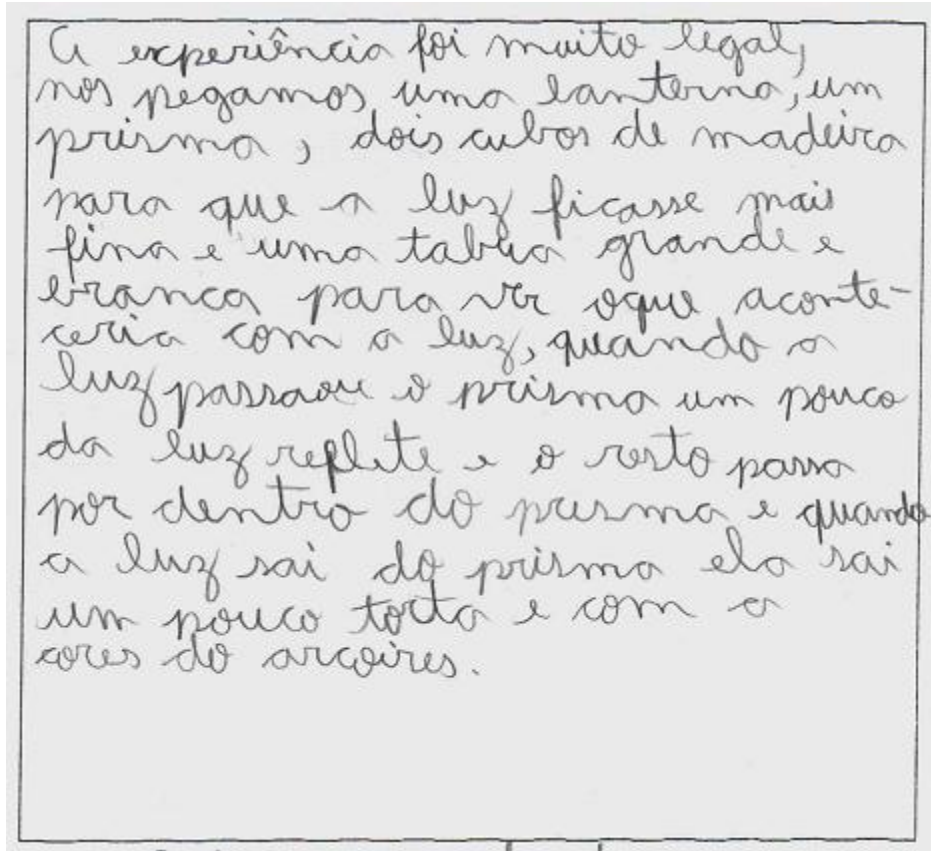 A experiência foi muito legal,
nos pegamos uma lanterna, um
prisma, dois cubos de madeira
para que a luz ficasse mais
fina e uma tabua grande e
branca para ver oque aconte-
ceria com a luz, quando a
luz passaou o prisma um pouco
da luz reflete e o resto passa
por dentro do prisma e quando
a luz sai do prisma ela sai
um pouco torta e com a
cores do arcoires.